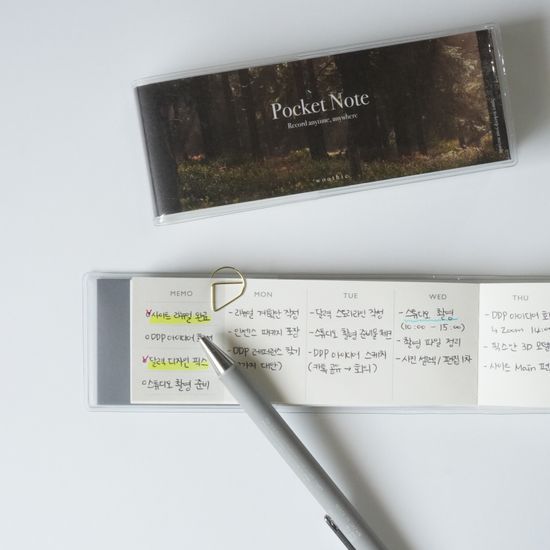 Pocket Note
Record anytime, anywhere
MEMO
사이트 리뉴얼 완료
DDP 아이디어
달력 디자인 픽스
스튜디오 촬영 준비
MON
- 리뉴얼 계획안 작성
- 인센스 패키지 포장
- DDP 레퍼런스 찾기
대안)
TUE
- 달력 스토리라인 작성
- 스튜디오 촬영 준비물 체크
- DDP 아이디어 스케치
(카톡 공유 → 회의)
WED
- 스튜디오 촬영
(10:00 - 15:00)
- 촬영 파일 정리
- 사진 셀렉 / 편집 1차
THU
- DDP 아이디어 회
Zoom 14:
- 픽스안 3D 모델
- 사이트 Main 편